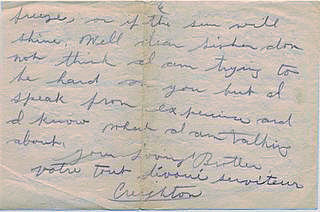 freeze, or if the sun will
shine. Well dear sister don
not think I am trying to
be hard on you but I
speak from experience and
I know what I am talking
about.
Your Loving Brother
votre tout dévoué serviteur
Creighton